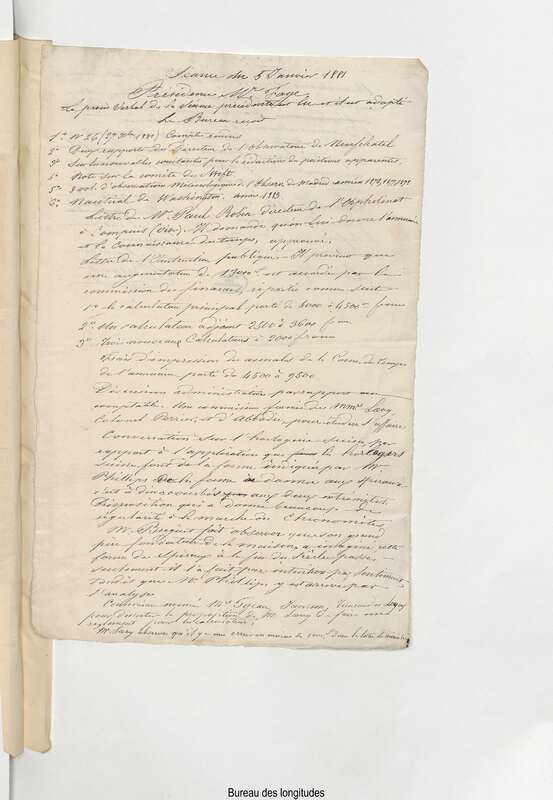 Séance du 5 Janvier 1881
Présidence Mr Faye
Le procès verbal de la Séance précédente est lu et il est adopté
Le Bureau reçoit
1° N° 26 (27 Xbre 1880) Comptes rendus
2° Deux rapports du Directeur de l'Observatoire de Neufchatel
3° Sur les nouvelles constantes pour la réduction de positions apparentes.
4° Note sur la comète de Swift
5° 3 vol. d'observations Météorologiques de l'Observ. de Madrid années
6° Nautical de Washington. année 1883
Lettre de Mr Paul Robin directeur de l'Orphelinat
à Cempuis (Oise). Il demande qu'on lui donne l'annuaire
et la Connaissance des temps, approuvé.
Lettre de l'Instruction publique. Il prévient que
une augmentation de est accordée par la
commission des finances, répartie comme suit
1° le calculateur principal porté de 4000 à 4500 francs
2° Un calculateur adjoint 2500 à 3600 fran
3° Trois nouveaux Calculateurs à 2000 francs
frais d'impression des annales de la Conn. des Temps
de l'annuaire porté de 4500 à 9500
Discussion administrative par rapport au
comptable. Une commission formée des MMrs Lœwy
Colonel Perrier, et d'Abbadie, pour étudier l'affaire
Conversation sur l'horlogerie Suisse par
rapport à l'application que font les horlogers
Suisses font de la forme indiquée par Mr
Phillips de la forme à donner aux spiraux
c'est à dire courbés aux deux extrémités.
Disposition qui a donné beaucoup de
régularité à la marche des Chronomètres.
Mr Breguet fait observer que son grand
père fondateur de la maison a indiqué cette
forme de Spiraux à la fin du Siècle passé
seulement il l'a fait par intuition par sentiment
tandis que Mr Phillips y est arrivé par
l'analyse
Commission nommée Mrs Janssen, et Lœwy
pour discuter la proposition de Mr Lœwy de faire un
règlement pour les calculateurs.
Mr Lœwy observe qu'il y a une erreur dans la liste